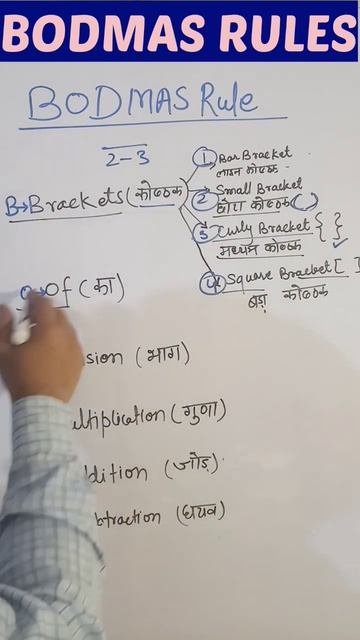 BODMAS RULES
BODMAS Rule
2-3
① Bar Bracket
लाइन कोष्ठक
B→Brackets (कोष्ठक)
② Small Bracket
छोटा कोष्ठक ( )
③ Curly Bracket { }
मध्यम कोष्ठक
④ Square Bracket [ ]
बड़ा कोष्ठक
O→Of (का)
sion (भाग)
ltiplication (गुणा)
dition (जोड़)
btraction (घटाव)